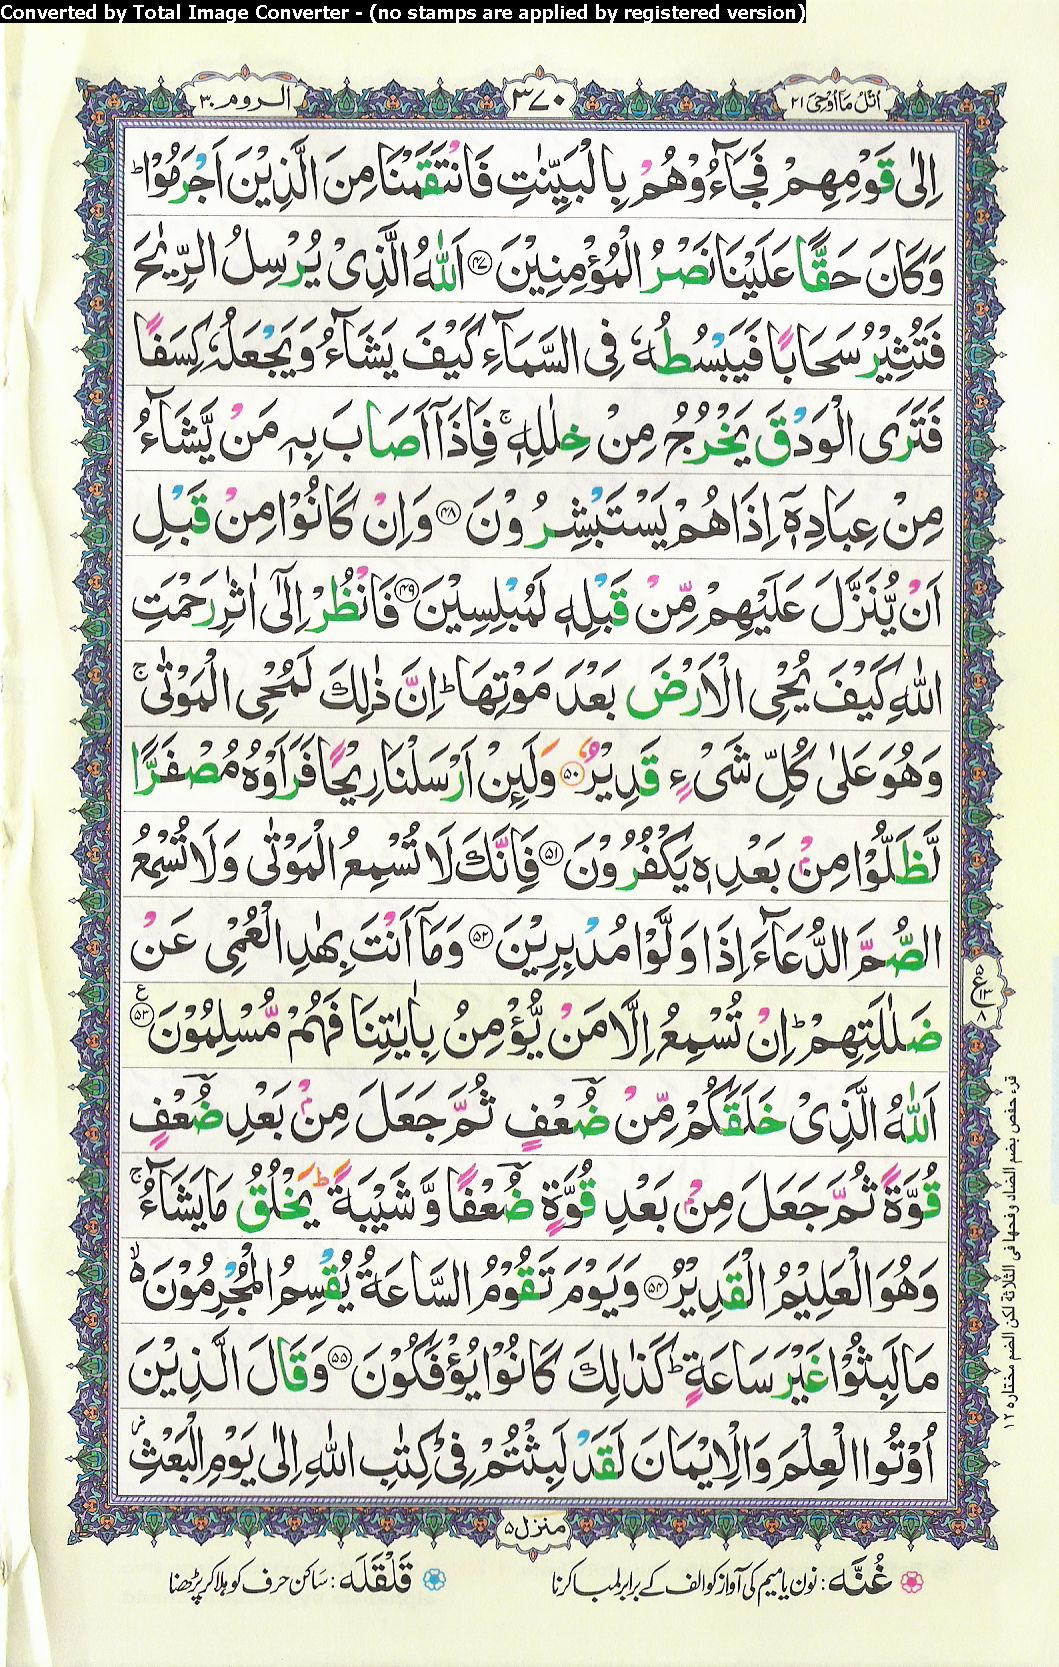 Converted by Total Image Converter - (no stamps are applied by registered version)
اتل ما اوحی ۲۱
۳۷۰
الروم ۳۰
اِلٰى قَوْمِهِمْ فَجَآءُوْهُمْ بِالْبَيِّنٰتِ فَانْتَقَمْنَا مِنَ الَّذِيْنَ اَجْرَمُوْا ؕ
وَكَانَ حَقًّا عَلَيْنَا نَصْرُ الْمُؤْمِنِيْنَ ۴۷ اَللّٰهُ الَّذِىْ يُرْسِلُ الرِّيٰحَ
فَتُثِيْرُ سَحَابًا فَيَبْسُطُهٗ فِى السَّمَآءِ كَيْفَ يَشَآءُ وَيَجْعَلُهٗ كِسَفًا
فَتَرَى الْوَدْقَ يَخْرُجُ مِنْ خِلٰلِهٖ ۚ فَاِذَاۤ اَصَابَ بِهٖ مَنْ يَّشَآءُ
مِنْ عِبَادِهٖۤ اِذَا هُمْ يَسْتَبْشِرُوْنَ ۴۸ وَاِنْ كَانُوْا مِنْ قَبْلِ
اَنْ يُّنَزَّلَ عَلَيْهِمْ مِّنْ قَبْلِهٖ لَمُبْلِسِيْنَ ۴۹ فَانْظُرْ اِلٰٓى اٰثٰرِ رَحْمَتِ
اللّٰهِ كَيْفَ يُحْىِ الْاَرْضَ بَعْدَ مَوْتِهَا ؕ اِنَّ ذٰلِكَ لَمُحْىِ الْمَوْتٰى ۚ
وَهُوَ عَلٰى كُلِّ شَىْءٍ قَدِيْرٌ ۵۰ وَلَئِنْ اَرْسَلْنَا رِيْحًا فَرَاَوْهُ مُصْفَرًّا
لَّظَلُّوْا مِنْۢ بَعْدِهٖ يَكْفُرُوْنَ ۵۱ فَاِنَّكَ لَا تُسْمِعُ الْمَوْتٰى وَلَا تُسْمِعُ
الصُّمَّ الدُّعَآءَ اِذَا وَلَّوْا مُدْبِرِيْنَ ۵۲ وَمَاۤ اَنْتَ بِهٰدِ الْعُمْىِ عَنْ
ضَلٰلَتِهِمْ ؕ اِنْ تُسْمِعُ اِلَّا مَنْ يُّؤْمِنُ بِاٰيٰتِنَا فَهُمْ مُّسْلِمُوْنَ ۵۳
اَللّٰهُ الَّذِىْ خَلَقَكُمْ مِّنْ ضُعْفٍ ثُمَّ جَعَلَ مِنْۢ بَعْدِ ضُعْفٍ
قُوَّةً ثُمَّ جَعَلَ مِنْۢ بَعْدِ قُوَّةٍ ضُعْفًا وَّشَيْبَةً ؕ يَخْلُقُ مَا يَشَآءُ ۚ
وَهُوَ الْعَلِيْمُ الْقَدِيْرُ ۵۴ وَيَوْمَ تَقُوْمُ السَّاعَةُ يُقْسِمُ الْمُجْرِمُوْنَ ۙ
مَا لَبِثُوْا غَيْرَ سَاعَةٍ ؕ كَذٰلِكَ كَانُوْا يُؤْفَكُوْنَ ۵۵ وَقَالَ الَّذِيْنَ
اُوْتُوا الْعِلْمَ وَالْاِيْمَانَ لَقَدْ لَبِثْتُمْ فِىْ كِتٰبِ اللّٰهِ اِلٰى يَوْمِ الْبَعْثِ ؗ
ع
۵
۱۳
۸
قرء حفص بضم الضاد وفتحها فى الثلاثة لكن الضم مختاره ۱۲
منزل ۵
غُنَّه : نون یا میم کی آواز کو الف کے برابر لمبا کرنا
قَلْقَلَه : ساکن حرف کو ہلا کر پڑھنا